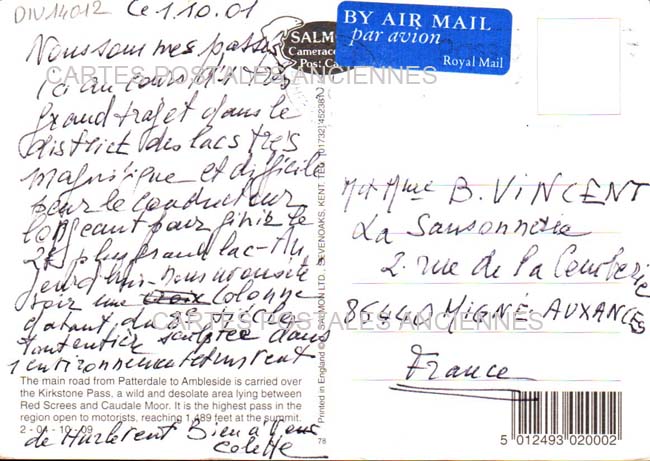 DIV14012 Ce 1.10.01
Nous sommes passés
ici au cours d'un très
grand trajet dans le
district des lacs très
magnifique et difficile
pour le conducteur
longeant pour finir le
2e plus grand lac
voir une Colonne
datant du 8e siècle
tout entier sculptée dans
l'environnement
de Bien à vous
Colette
SALMON
Cameracolour
Post Card
BY AIR MAIL
par avion
Royal Mail
CARTES POSTALES ANCIENNES
M et Mme B. VINCENT
La Sansonnerie
2. rue de la
86440 MIGNÉ AUXANCES
France
CARTES POSTALES ANCIENNES
The main road from Patterdale to Ambleside is carried over
the Kirkstone Pass, a wild and desolate area lying between
Red Screes and Caudale Moor. It is the highest pass in the
region open to motorists, reaching 1,489 feet at the summit.
2 - 04 - 10 - 09
Printed in England © J. SALMON LTD., SEVENOAKS, KENT. TEL (01732) 452381
78
5 012493 020002